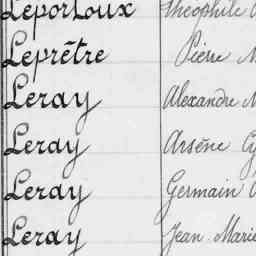 Leportoux Théophile
Leprêtre Pierre
Leray Alexandre
Leray Arsène
Leray Germain
Leray Jean Marie